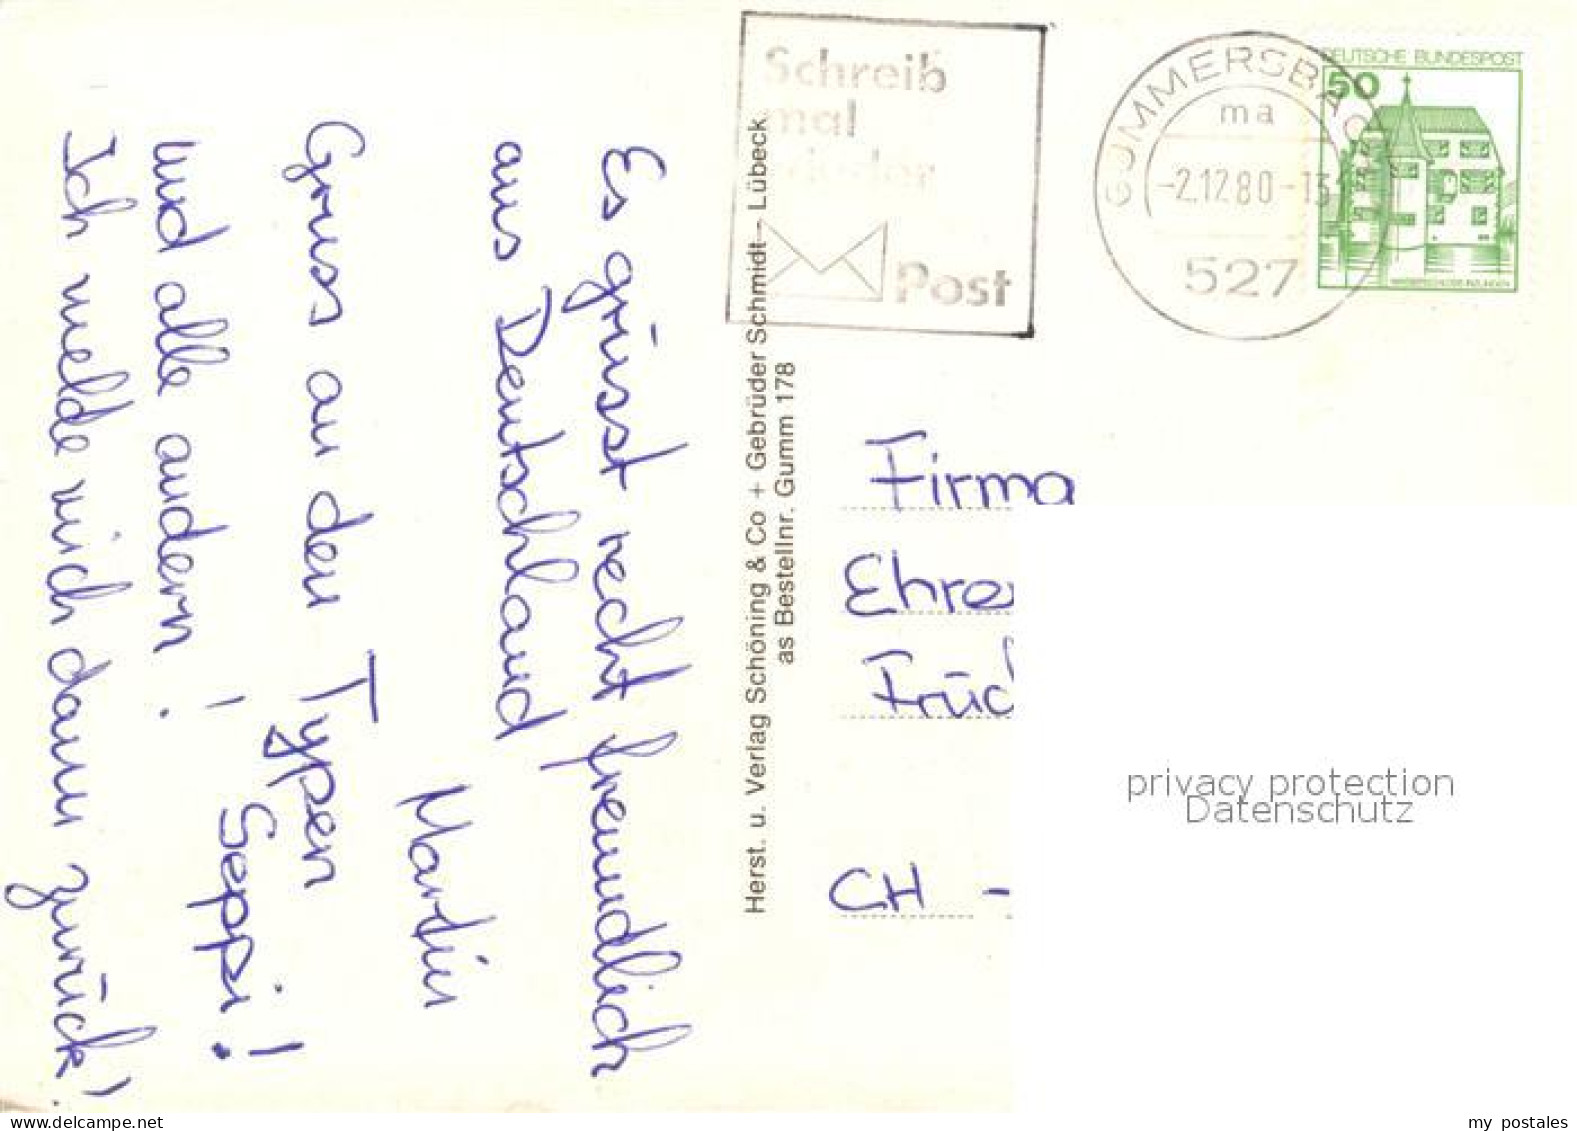 Es grüsst recht freundlich
aus Deutschland
Martin
Gruss an den Typen
und alle andern!
Seppi!
Ich melde mich dann zurück!
Herst. u. Verlag Schöning & Co + Gebrüder Schmidt - Lübeck
as Bestellnr. Gumm 178
Schreib
mal
wieder
Post
GUMMERSBAC
ma
-2.12.80-13
527
DEUTSCHE BUNDESPOST
50
Firma
Ehre
Früc
CH -
privacy protection
Datenschutz
delcampe.net
my postales